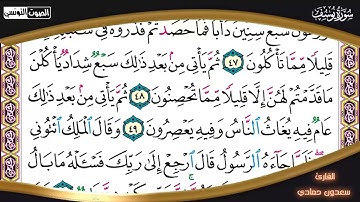 سورة يوسف
الصوت التونسي
سبع سنين دأبا فما حصدتم فذروه في
قليلا مما تأكلون ٤٧ ثم يأتي من بعد ذلك سبع شداد يأكلن
ما قدمتم لهن إلا قليلا مما تحصنون ٤٨ ثم يأتي من بعد ذلك
عام فيه يغاث الناس وفيه يعصرون ٤٩ وقال الملك ائتوني
فلما جاءه الرسول قال ارجع إلى ربك فسئله ما بال
القارئ
سعدون حمادي